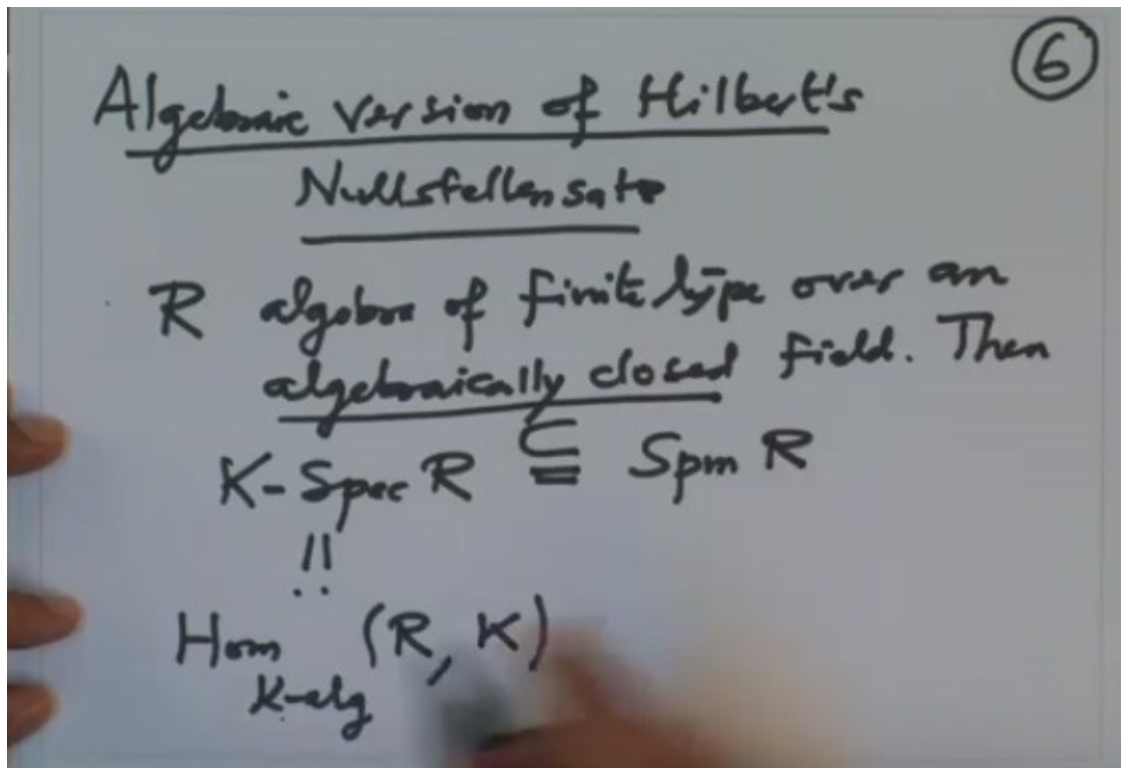 6
Algebraic version of Hilbert's
Nullstellensatz
R algebra of finite type over an
algebraically closed field. Then
K-Spec R ⊆ Spm R
!!
..
Hom (R, K)
K-alg